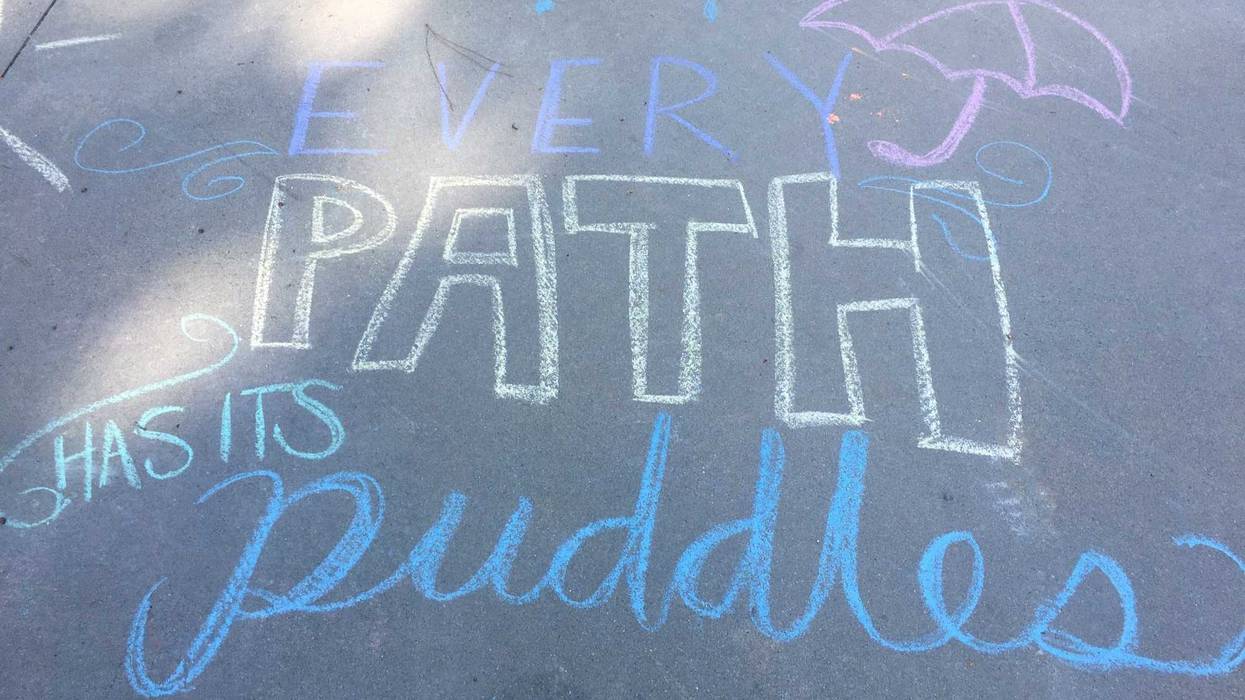 EVERY
PATH
HAS ITS
puddles